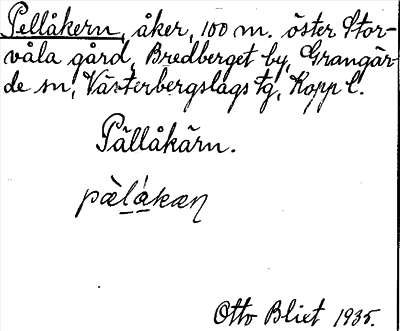 Pellåkern, åker, 100 m. öster Stor-
våla gård, Bredberget by, Grangär-
de sn, Västerbergslags tg, Kopp l.
Pällåkärn.
pàlákæn
Otto Blixt 1935.